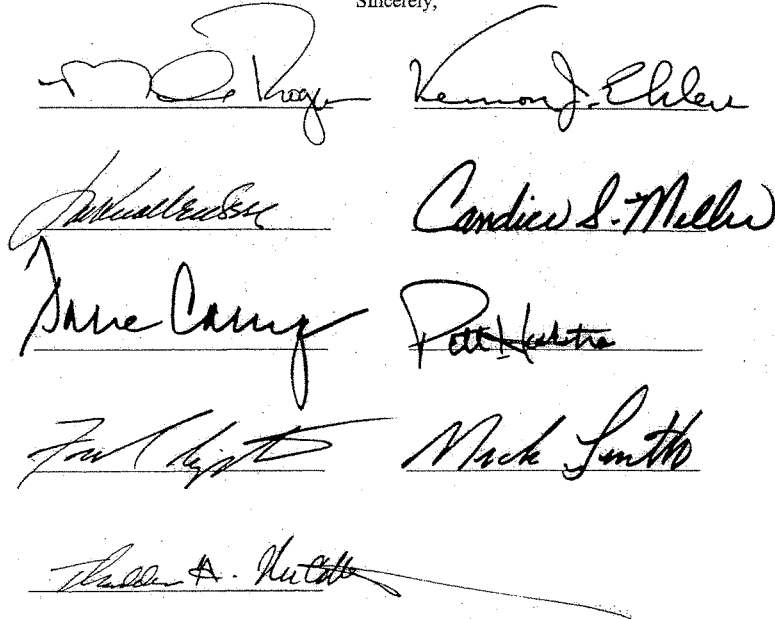 Sincerely,
Mike Rogers Vernon J. Ehlers
Candice S. Miller
Dave Camp Pete Hoekstra
Fred Upton Nick Smith
Thaddeus G. McCotter